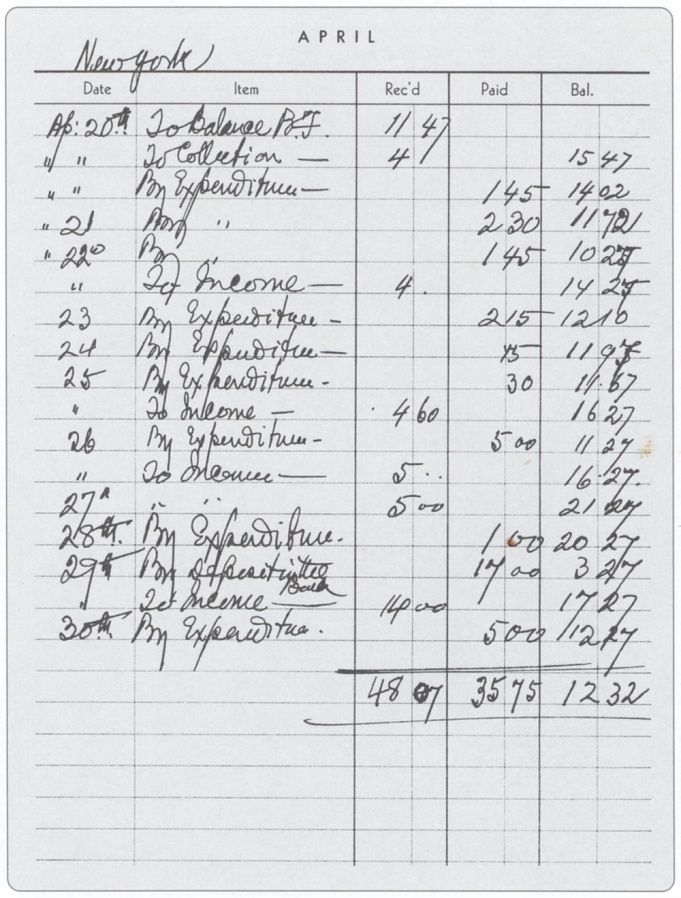 APRIL
New York
Date Item Rec'd Paid Bal.
Ap: 20th To Balance B.F. 11 47
" " To Collection — 4 15 47
" " By Expenditure — 1 45 14 02
" 21 " 2 30 11 72
" 22 By " 1 45 10 27
" To Income — 4. 14 25
23 By Expenditure - 2 15 12 10
24 By Expenditure — 15 11 95
25 By Expenditure - 30 11.67
" To Income — 4 60 16 27
26 By Expenditure - 5 00 11 27
" To Income — 5 .. 16.27.
27 " " 5 00 21 27
28th. By Expenditure. 1 00 20 27
29th By deposit in the Bank 17 00 3 27
" To Income — 14 00 17 27
30th By Expenditure. 5 00 12 27
48 07 35 75 12 32